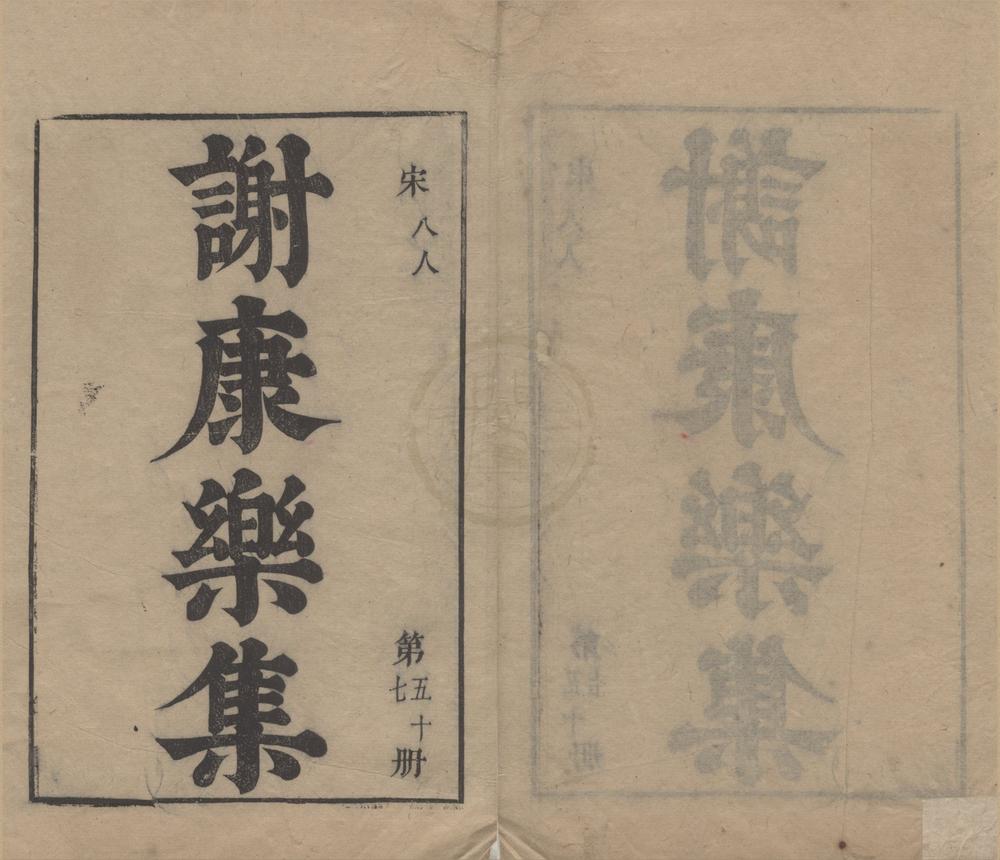 宋八人
第五十七冊
謝康樂集